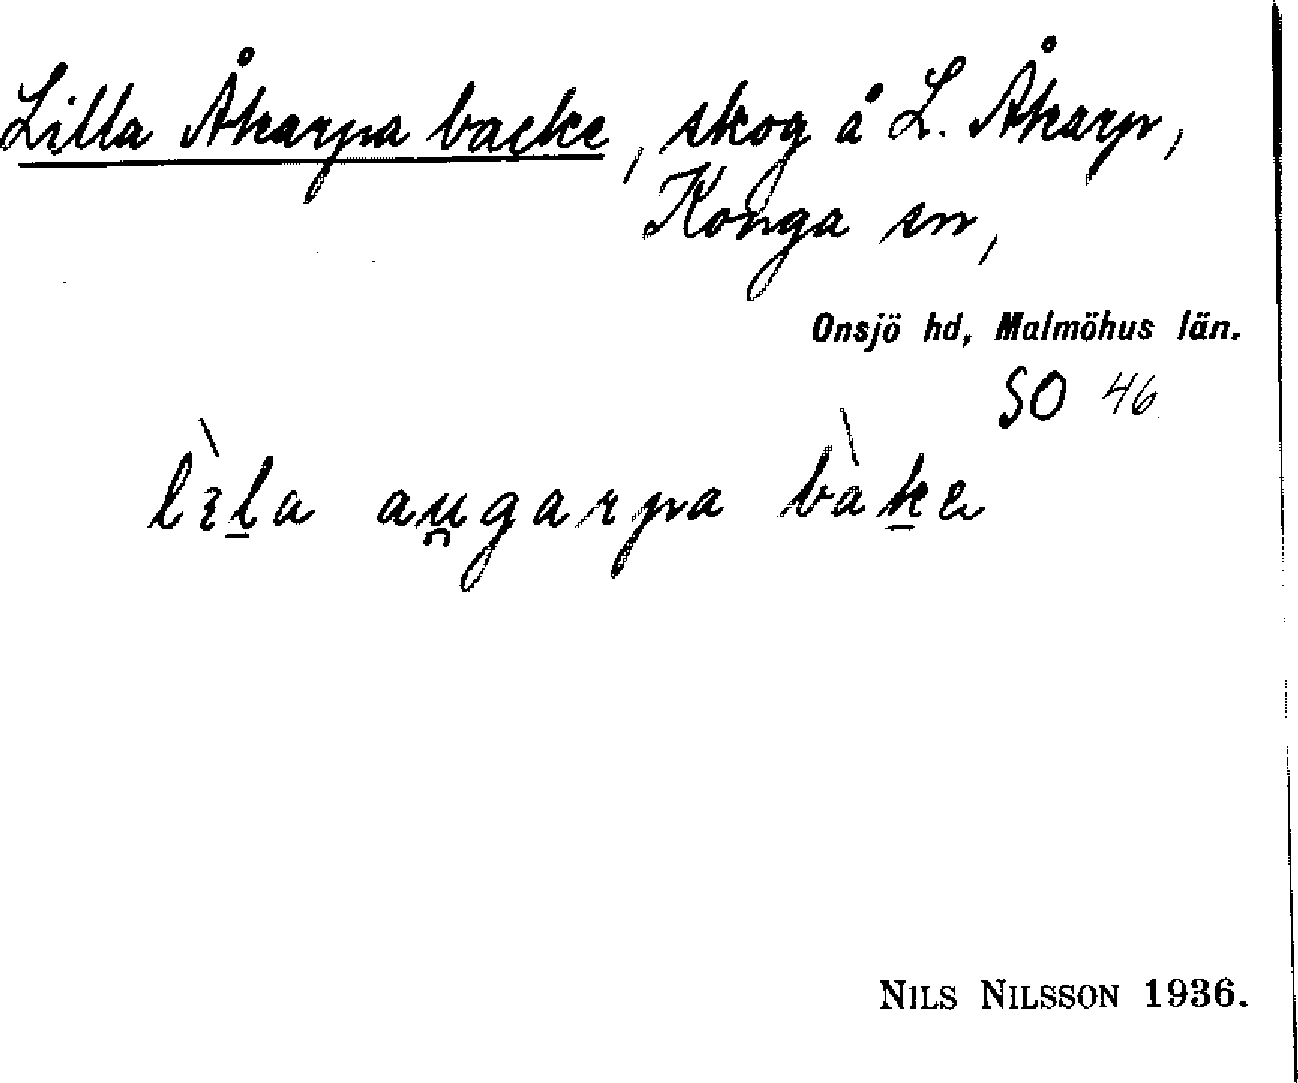 Lilla Åkarpa backe, skog å L. Åkarp,
Konga sn,
Onsjö hd, Malmöhus län.
SO 46
lìl̠a au̯garpa bàk̠e
NILS NILSSON 1936.